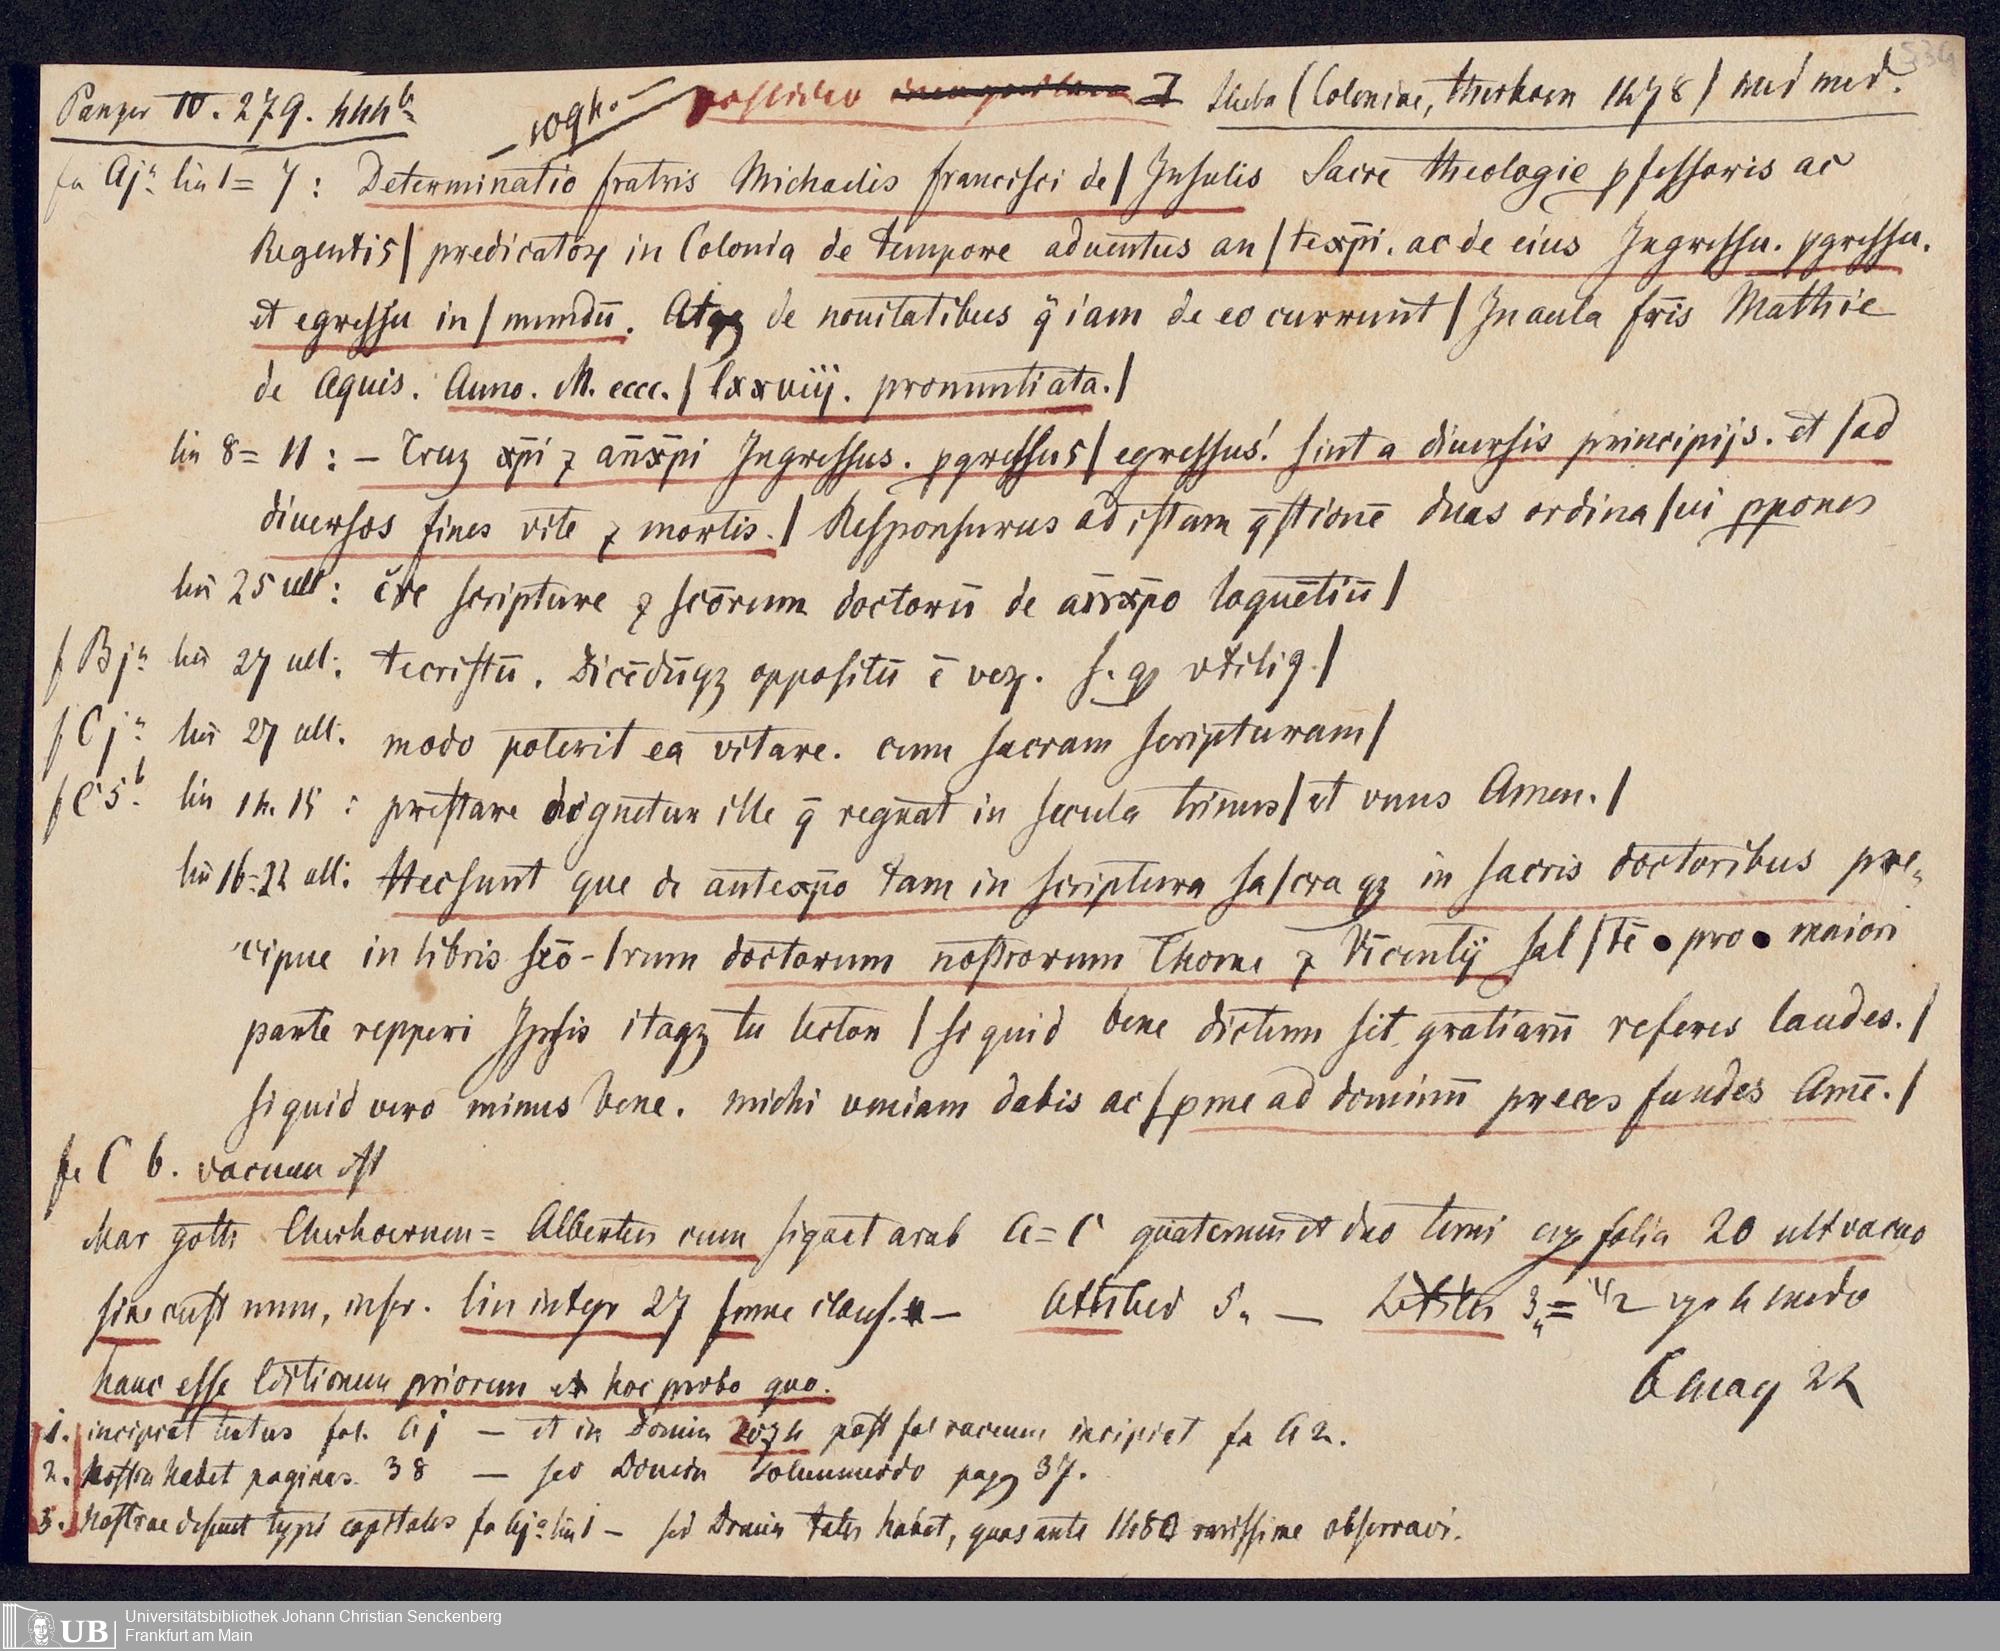 Panzer IV. 279. 444b
1094. possideo I (Coloniae, therhoern 1478) med med.
fa Aja lin 1=7: Determinatio fratris Michaelis francisci de | Insulis Sacre theologie ꝓfessoris ac
Regentis | predicatoꝝ in Colonia de tempore aduentus an | texp̄i. ac de eius Ingressu. ꝓgressu.
et egressu in | mundū. Atqꝫ de nouitatibus q̄ iam de eo currunt | In aula fr̄is Mathie
de Aquis. Anno. M. cccc. | lxxviij. pronuntiata. |
lin 8=11: — Cruꝫ xp̄i ⁊ an̄xp̄i Ingressus. ꝓgressus | egressus! sint a diuersis principijs. et | ad
diuersos fines vite ⁊ mortis. | Responsurus ad istam q̄stionē duas ordina | ui ꝓpones
lin 25 ult: c̄re scripture ⁊ sc̄orum doctorū de an̄xp̄o loquētiū |
f Bja lin 27 ult: tecristū. Dicēdūqꝫ oppositū ē veꝝ. s. ꝙ vtiliꝰ. |
f Cja lin 27 ult. modo poterit ea vitare. cum sacram scripturam |
f C5b. lin 14. 15: prestare dignetur ille q̄ regnat in secula trinus | et vnus Amen. |
lin 16=22 ult: Hec sunt que de antexp̄o tam in scriptura sa | cra qꝫ in sacris doctoribus pre-
cipue in libris sc̄o- | rum doctorum nostrorum Thome ⁊ Vīcentij sal | tē pro maiori
parte repperi Ipsis itaqꝫ tu lector | si quid bene dictum sit gratiarū referes laudes. |
si quid vero minus bene. michi veniam dabis ac | ꝓ me ad dominū preces fundes Amē. |
fo C 6. vacuum est
char goth Therhoernen= Alberten cum signat arab A=C quaternus et duo terni ergo folia 20 ult vacuo
sine cust num, inscr. lin integr 27 — 5„ — 3„=
hanc esse Editionem priorem ex hoc probo quo.
6 may 22
1. incipiat textus fol. Aj — et in Domin 2074 post fol vacuum incipiet fa A2.
2. Nostra habet paginas 38 — sed Domin solummodo pagg 37.
3. Nostrae desunt typi capitales fo Aja lin 1 — sed Domin tales habet, quas ante 1480 rarissime observavi.
Universitätsbibliothek Johann Christian Senckenberg
UB Frankfurt am Main